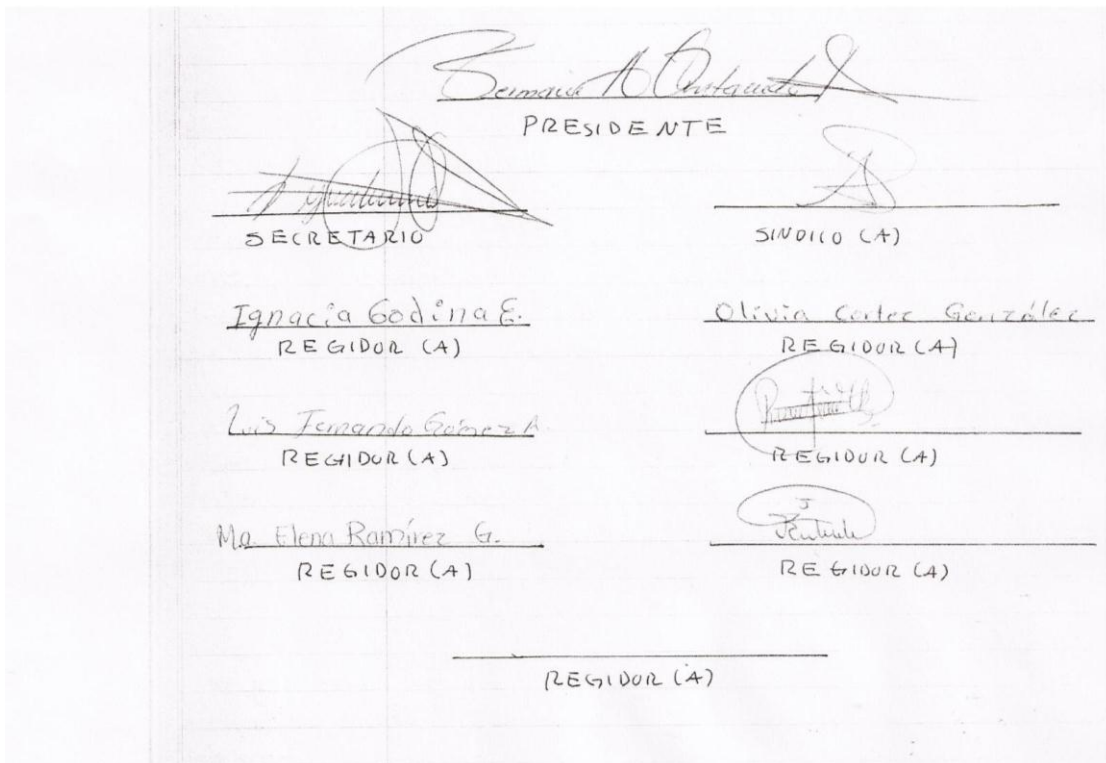 PRESIDENTE
SECRETARIO
SINDICO (A)
Ignacia Godina E.
Olivia Cortez González
REGIDOR (A)
REGIDOR (A)
Luis Fernando Gómez A.
REGIDOR (A)
REGIDOR (A)
Ma. Elena Ramírez G.
REGIDOR (A)
REGIDOR (A)
REGIDOR (A)